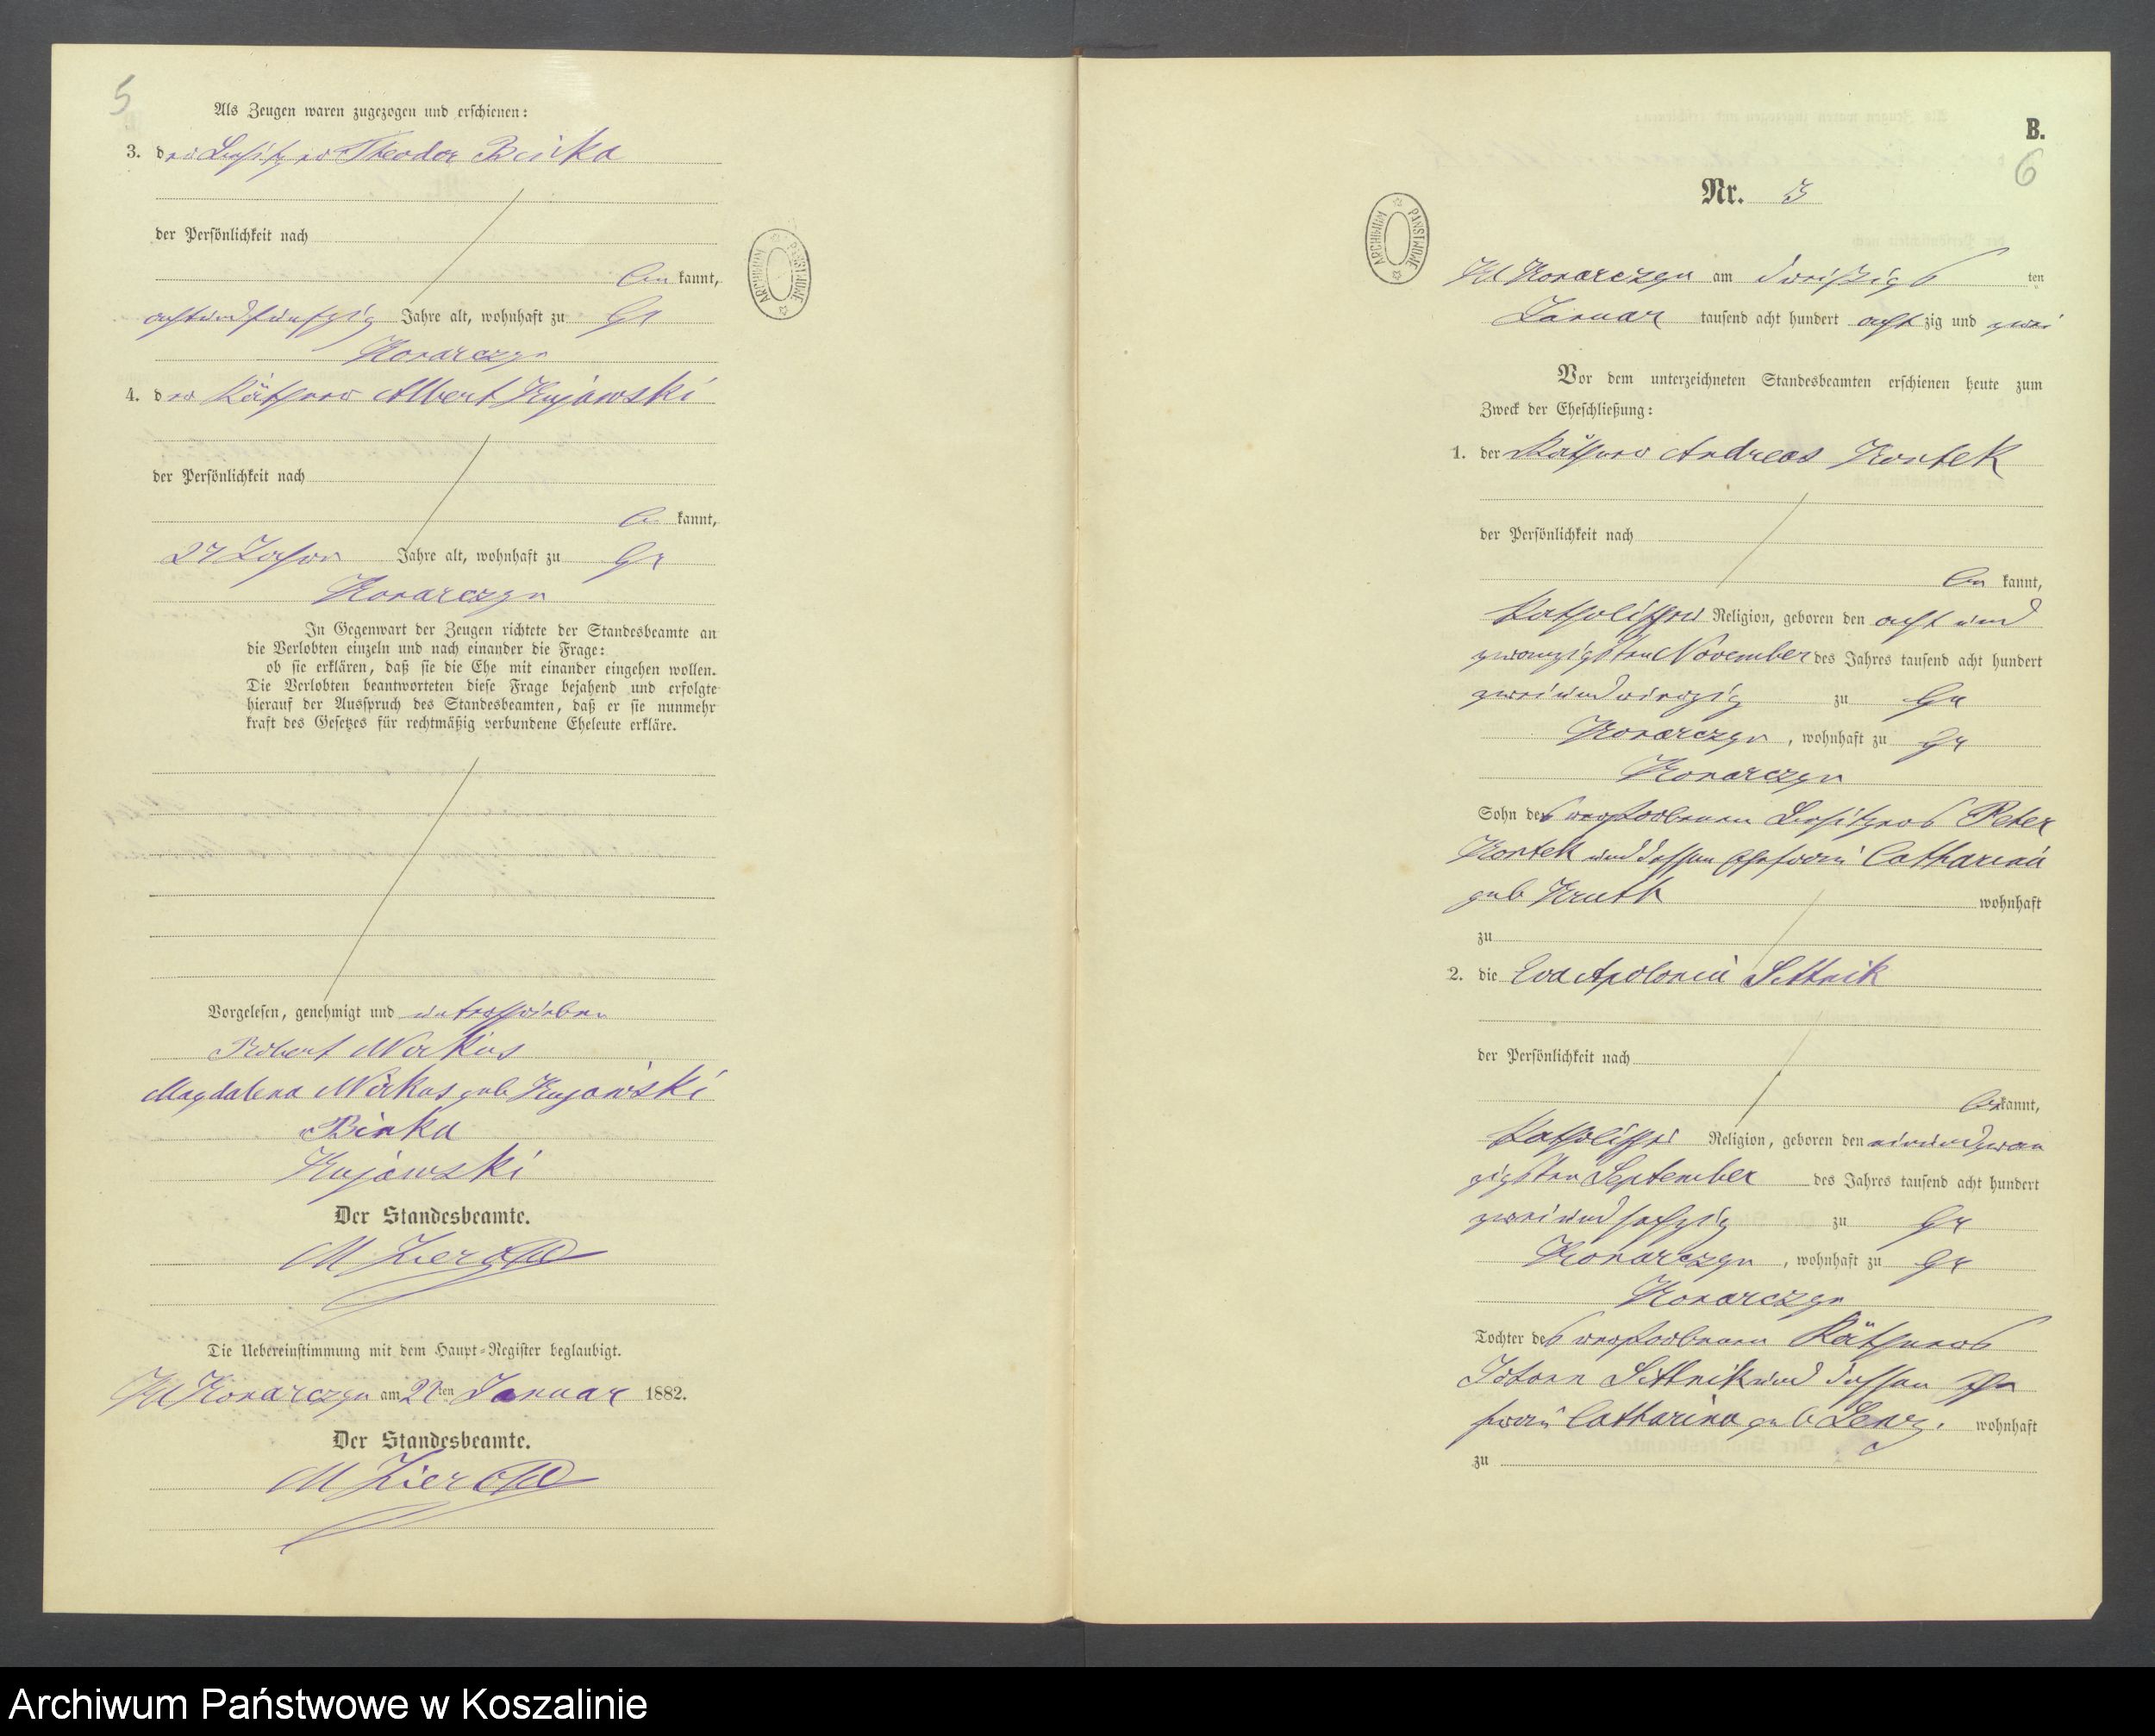 5
Als Zeugen waren zugezogen und erschienen:
3. der Besitzer Theodor Binka
der Persönlichkeit nach
be kannt,
achtundfünfzig Jahre alt, wohnhaft zu Gr
Konarczyn
4. der Käthner Albert Kujawski
der Persönlichkeit nach
be kannt,
27 Jahre alt, wohnhaft zu Gr
Konarczyn
In Gegenwart der Zeugen richtete der Standesbeamte an
die Verlobten einzeln und nach einander die Frage:
ob sie erklären, daß sie die Ehe mit einander eingehen wollen.
Die Verlobten beantworteten diese Frage bejahend und erfolgte
hierauf der Ausspruch des Standesbeamten, daß er sie nunmehr
kraft des Gesetzes für rechtmäßig verbundene Eheleute erkläre.
Vorgelesen, genehmigt und unterschrieben
Robert Wirkus
Magdalena Wirkus geb Kujawski
Binka
Kujawski
Der Standesbeamte.
M
Die Uebereinstimmung mit dem Haupt-Register beglaubigt.
Kl Konarczyn am ten Januar 1882.
Der Standesbeamte.
M
ARCHIWUM PAŃSTWOWE
B.
6
Nr. 3
ARCHIWUM PAŃSTWOWE
Kl Konarczyn am dreißigs ten
Januar tausend acht hundert acht zig und zwei
Vor dem unterzeichneten Standesbeamten erschienen heute zum
Zweck der Eheschließung:
1. der Käthner Andreas Kortek
der Persönlichkeit nach
be kannt,
katholischer Religion, geboren den acht und
zwanzigsten November des Jahres tausend acht hundert
zwei und vierzig zu Gr
Konarczyn, wohnhaft zu Gr
Konarczyn
Sohn des verstorbenen Besitzers Peter
Kortek und dessen Ehefrau Catharina
geb Kruth wohnhaft
zu
2. die Eva Apolonia Sittnik
der Persönlichkeit nach
be kannt,
katholischer Religion, geboren den einundzwan
zigsten September des Jahres tausend acht hundert
zwei und sechzig zu Gr
Konarczyn, wohnhaft zu Gr
Konarczyn
Tochter des verstorbenen Käthners
Johann Sittnik und dessen Ehe
frau Catharina geb wohnhaft
zu
Archiwum Państwowe w Koszalinie